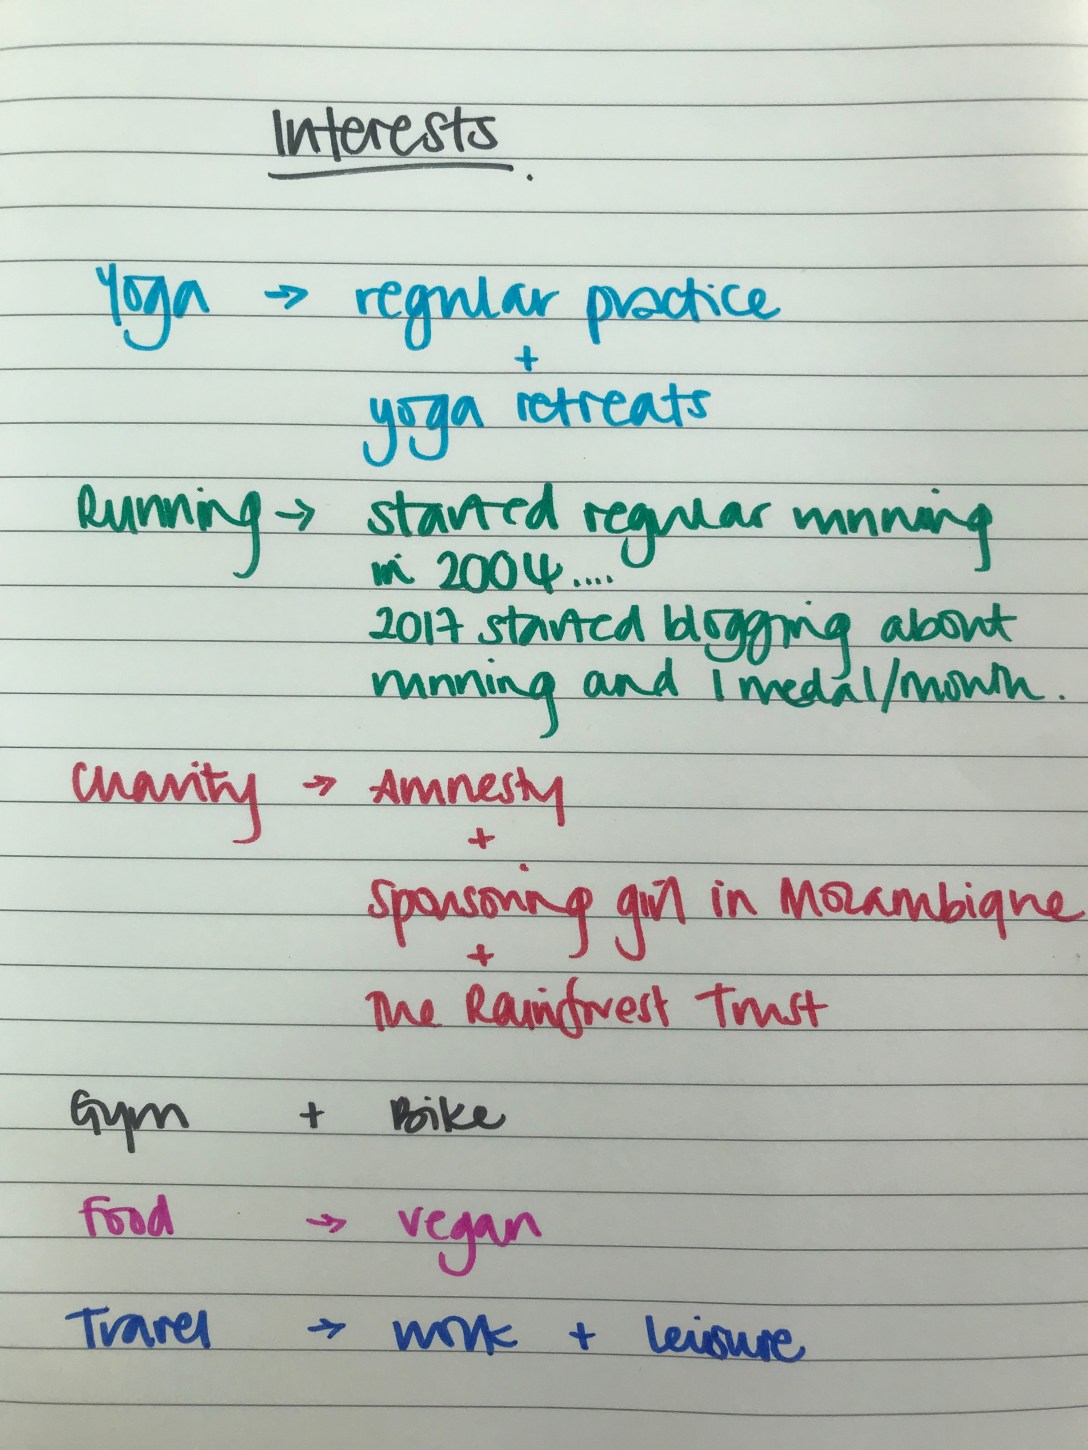 Interests.
Yoga → regular practice
+
yoga retreats
Running → started regular running
in 2004....
2017 started blogging about
running and 1 medal/month.
Charity → Amnesty
+
Sponsoring girl in Mozambique
+
The Rainforest Trust
Gym + Bike
Food → vegan
Travel → work + leisure